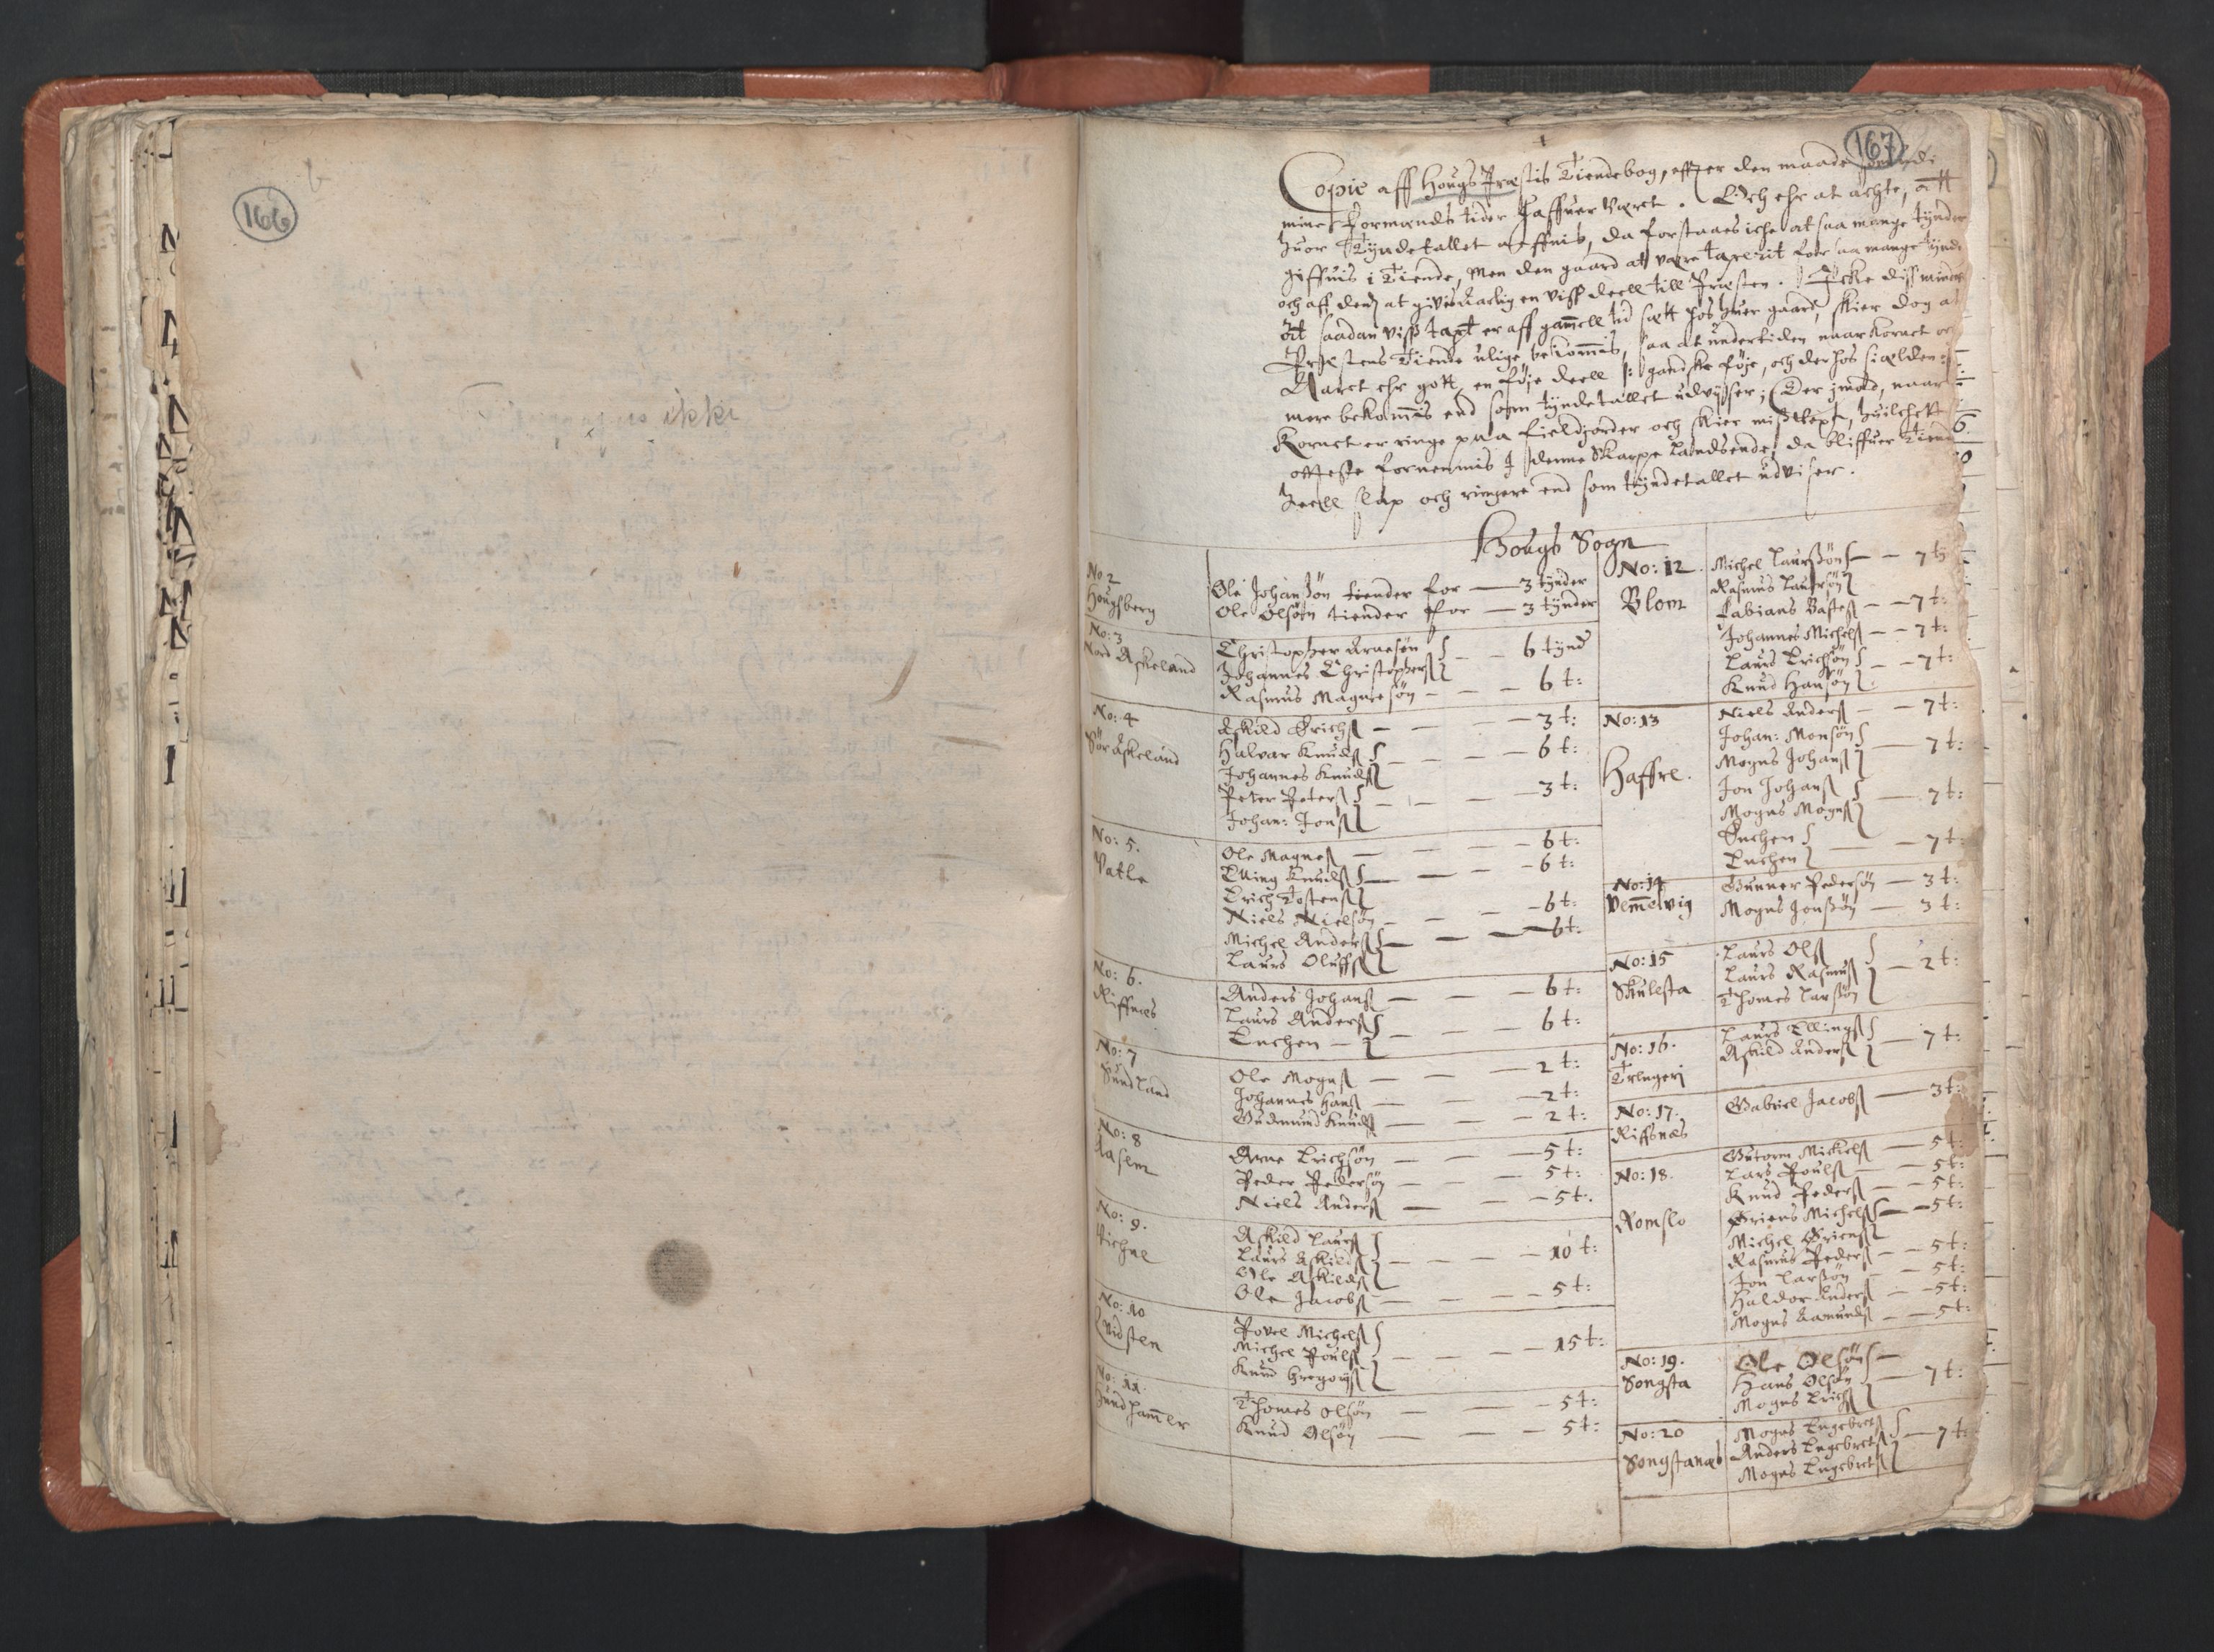 166
167
Copie aff Hougs Præstis Tiendebog, effter den maade
mine Formænds tider haffuer været. Och ehr at achte, att
huor Tyndetallet næffnis, da forstaaes iche at saa mange tynder
giffuis i Tiende, Men den gaard at være taxerit for saa mange tynder
och aff den at givis Aarlig en viss deell till Præsten. Icke diss minder
At saadan viss taxt er aff gammell tid satt hos huer gaard, skier dog at
Præstens Tiende ulige bekommis, saa at undertiden naar Kornet och
Aaret ehr gott, en føje deell /: gandske føje, och der hos sielden :/
mere bekommis end som tyndetallet udvisser; Der jmod, naar
Kornet er ringe paa fieldjorder och skier mißvext, huilchet
offteste fornemmis i denne Skarpe Landsende, da bliffuer Tiende
deell slap och ringere end som tyndetallet udviser.
Hougs Sogn
No 2
Hougsberg
Ole Johanßøn tiender for — 3 tynder
Ole Olsøn tiender for — 3 tynder
No: 3
Nord Askeland
Christopher Arnesøn
Johannes Christophers — 6 tynd
Rasmus Magnesøn — 6 t:
No: 4
Sør Askeland
Askild Erichs — 3 t:
Halvar Knuds — 6 t:
Johannes Knuds
Peter Peters — 3 t:
Johan: Jons
No: 5.
Vatle
Ole Magnes — 6 t:
Elling Knuds — 6 t:
Erich Tostens
Niels Nielsøn — 6 t:
Michel Anders — 6 t:
Laurs Oluffs
No: 6.
Riffnes
Anders Johans — 6 t:
Laurs Anders — 6 t:
Enchen —
No: 7
Sundland
Ole Mogns — 2 t:
Johannes Hans — 2 t:
Gudmund Knuds — 2 t:
No: 8
Aasem
Arne Erichsøn — 5 t:
Peder Pedersøn — 5 t:
Niels Anders — 5 t:
No: 9.
Askild Laurs
Laurs Askilds — 10 t:
Ole Askilds
Ole Jacobs — 5 t:
No: 10
Qvidsten
Povel Michels
Michel Pouls — 15 t:
Knud Gregoris
No: 11
Hundhammer
Thomes Olsøn — 5 t:
Knud Olsøn — 5 t:
No: 12.
Blom
Michel Laurßøn — 7 t:
Rasmus Laursøn
Fabians Bastes — 7 t:
Johannes Michels — 7 t:
Laurs Erichsøn — 7 t:
Knud Hansøn
No: 13
Haffre.
Niels Anders — 7 t:
Johan: Monsøn — 7 t:
Mogns Johans
Jon Johans — 7 t:
Mogns Mogns
Enchen
Enchen — 7 t:
No: 14
Vemmelvig
Gunner Pedersøn — 3 t:
Mogns Jonsøn — 3 t:
No: 15
Skulesta
Laurs Ols
Laurs Rasmus — 2 t:
Thomes Larsøn
No: 16.
Trengeri
Laurs Ellings
Askild Anders — 7 t:
No: 17.
Riffsnes
Gabriel Jacobs — 3 t:
No: 18.
Romslo
Gutorm Mickels — 5 t:
Lars Pouls — 5 t:
Knud Peders — 5 t:
Griens Michels — 5 t:
Michel Griens
Rasmus Peders — 5 t:
Jon Larsøn — 5 t:
Haldor Anders — 5 t:
Mogns Aamunds — 5 t:
No: 19.
Songsta
Ole Olsøn
Hans Olsøn — 7 t:
Mogns Erichs
No: 20
Songstanæs
Mogns Engebrets
Anders Engebrets — 7 t:
Mogns Engebrets